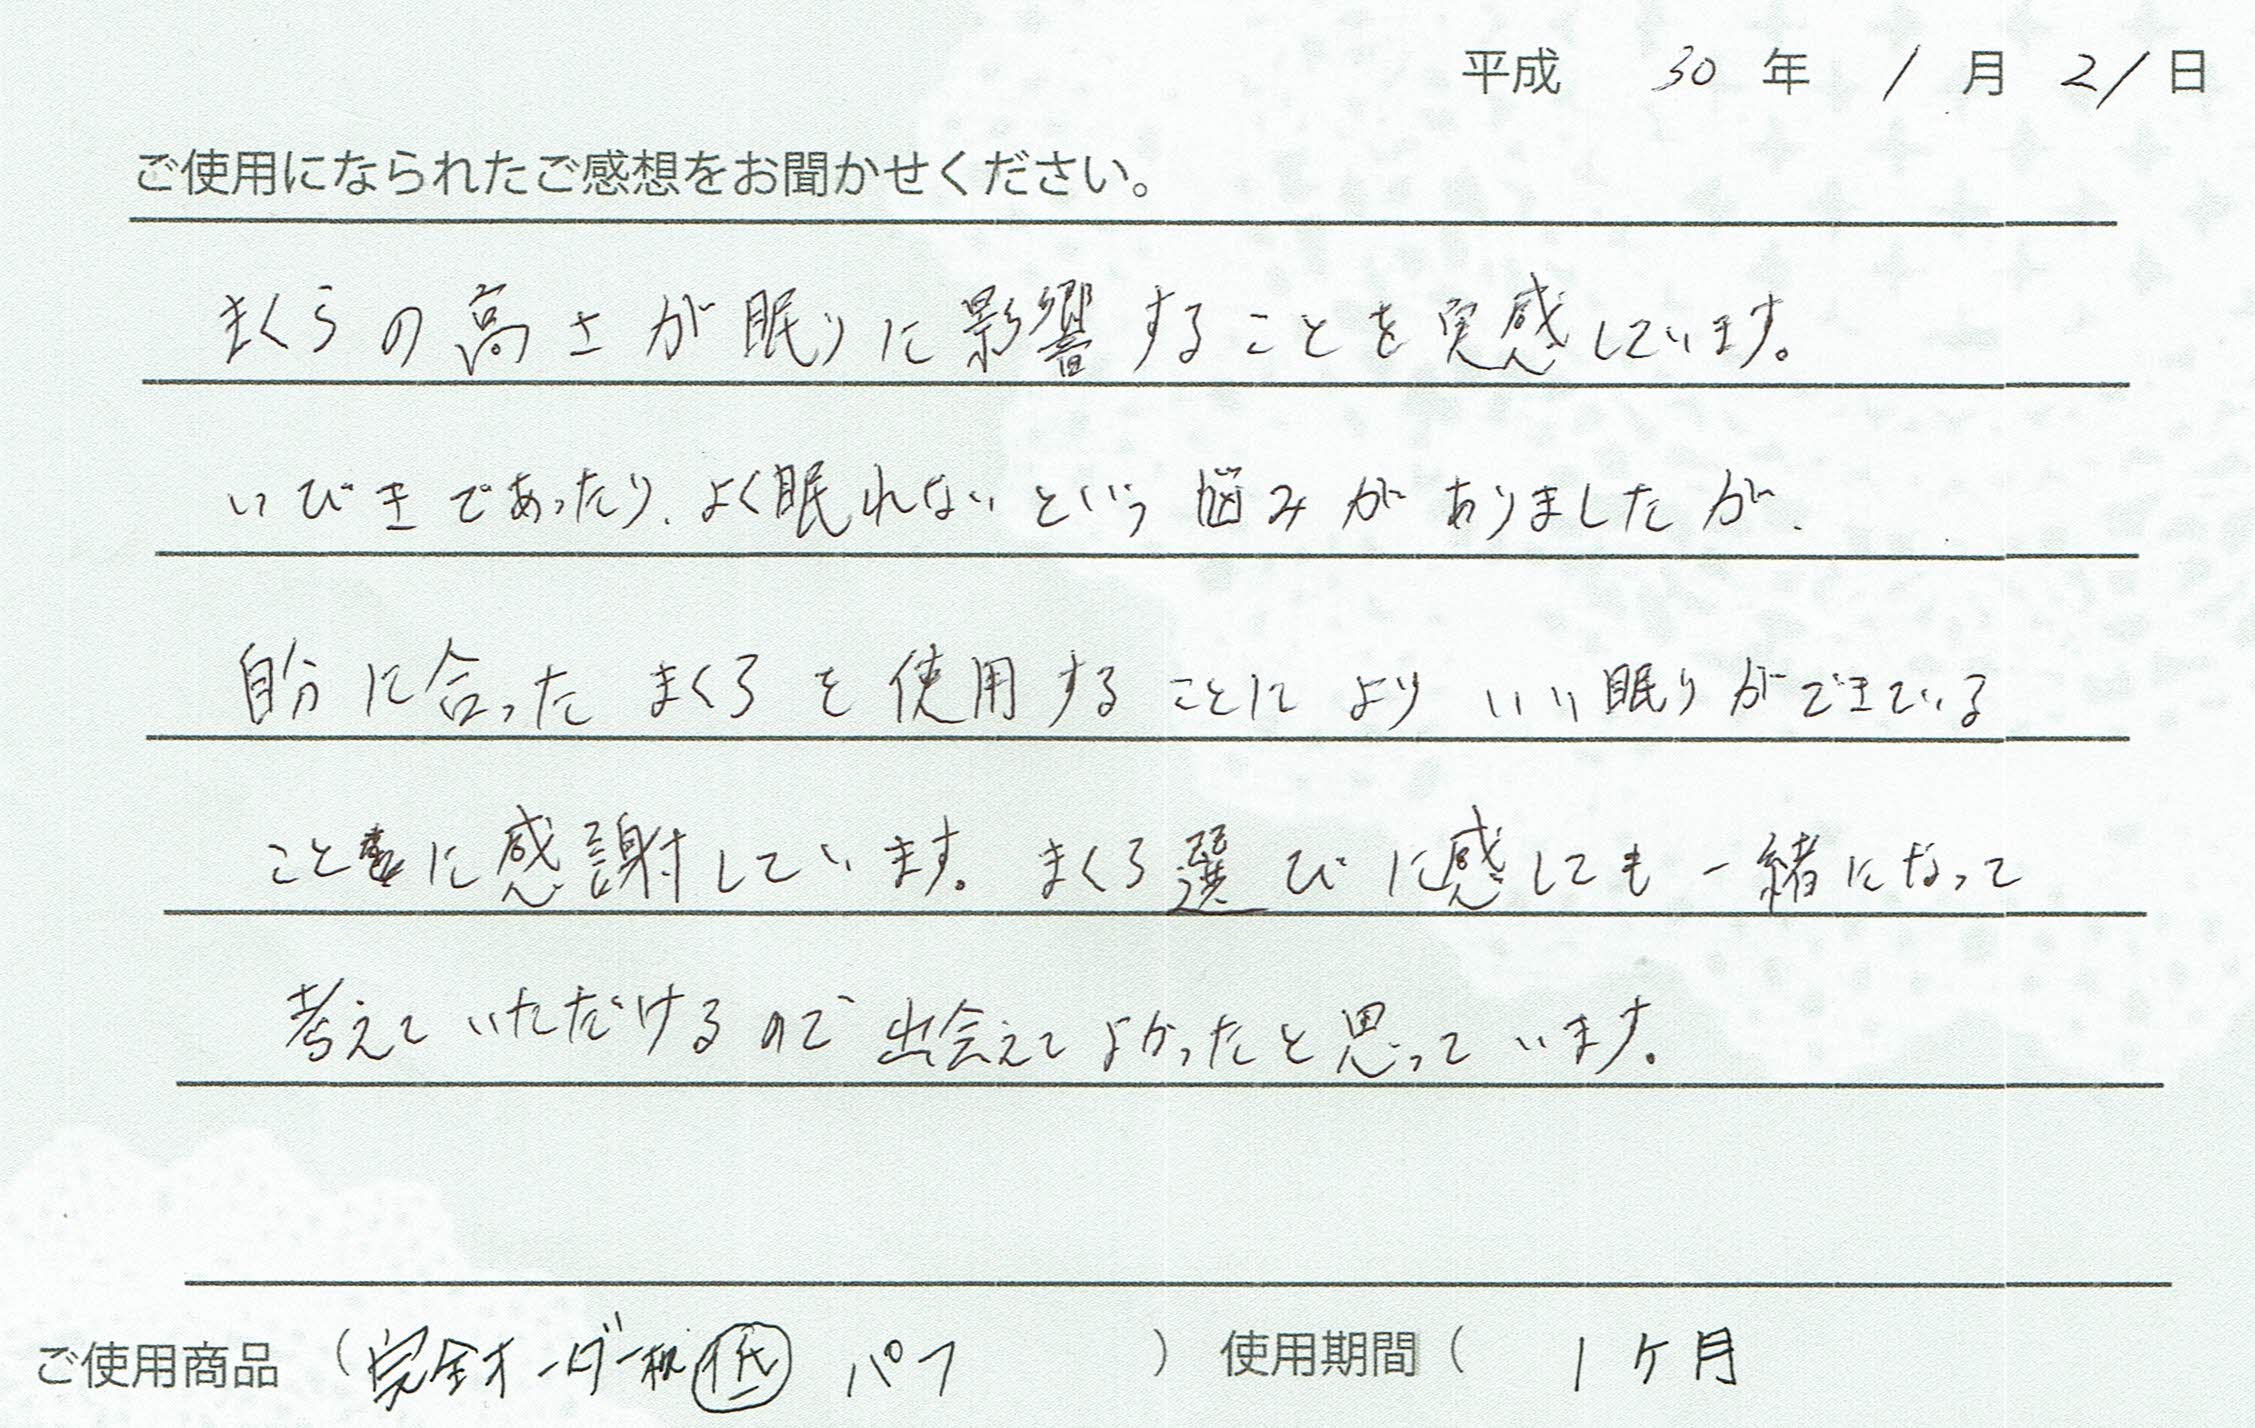 平成 30 年 1 月 21 日
ご使用になられたご感想をお聞かせください。
まくらの高さが眠りに影響することを実感しています。
いびきであったり、よく眠れないという悩みがありましたが、
自分に合ったまくらを使用することによりいい眠りができている
ことに感謝しています。まくら選びに感しても一緒になって
考えていただけるので出会えてよかったと思っています。
ご使用商品（完全オーダー枕 低 パフ ） 使用期間（ 1ヶ月